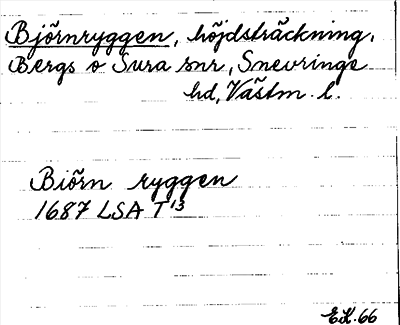 Björnryggen, höjdsträckning,
Bergs o Sura snr, Snevringe
hd, Västm. l.
Biörn ryggen
1687 LSA T 13
E.K. 66